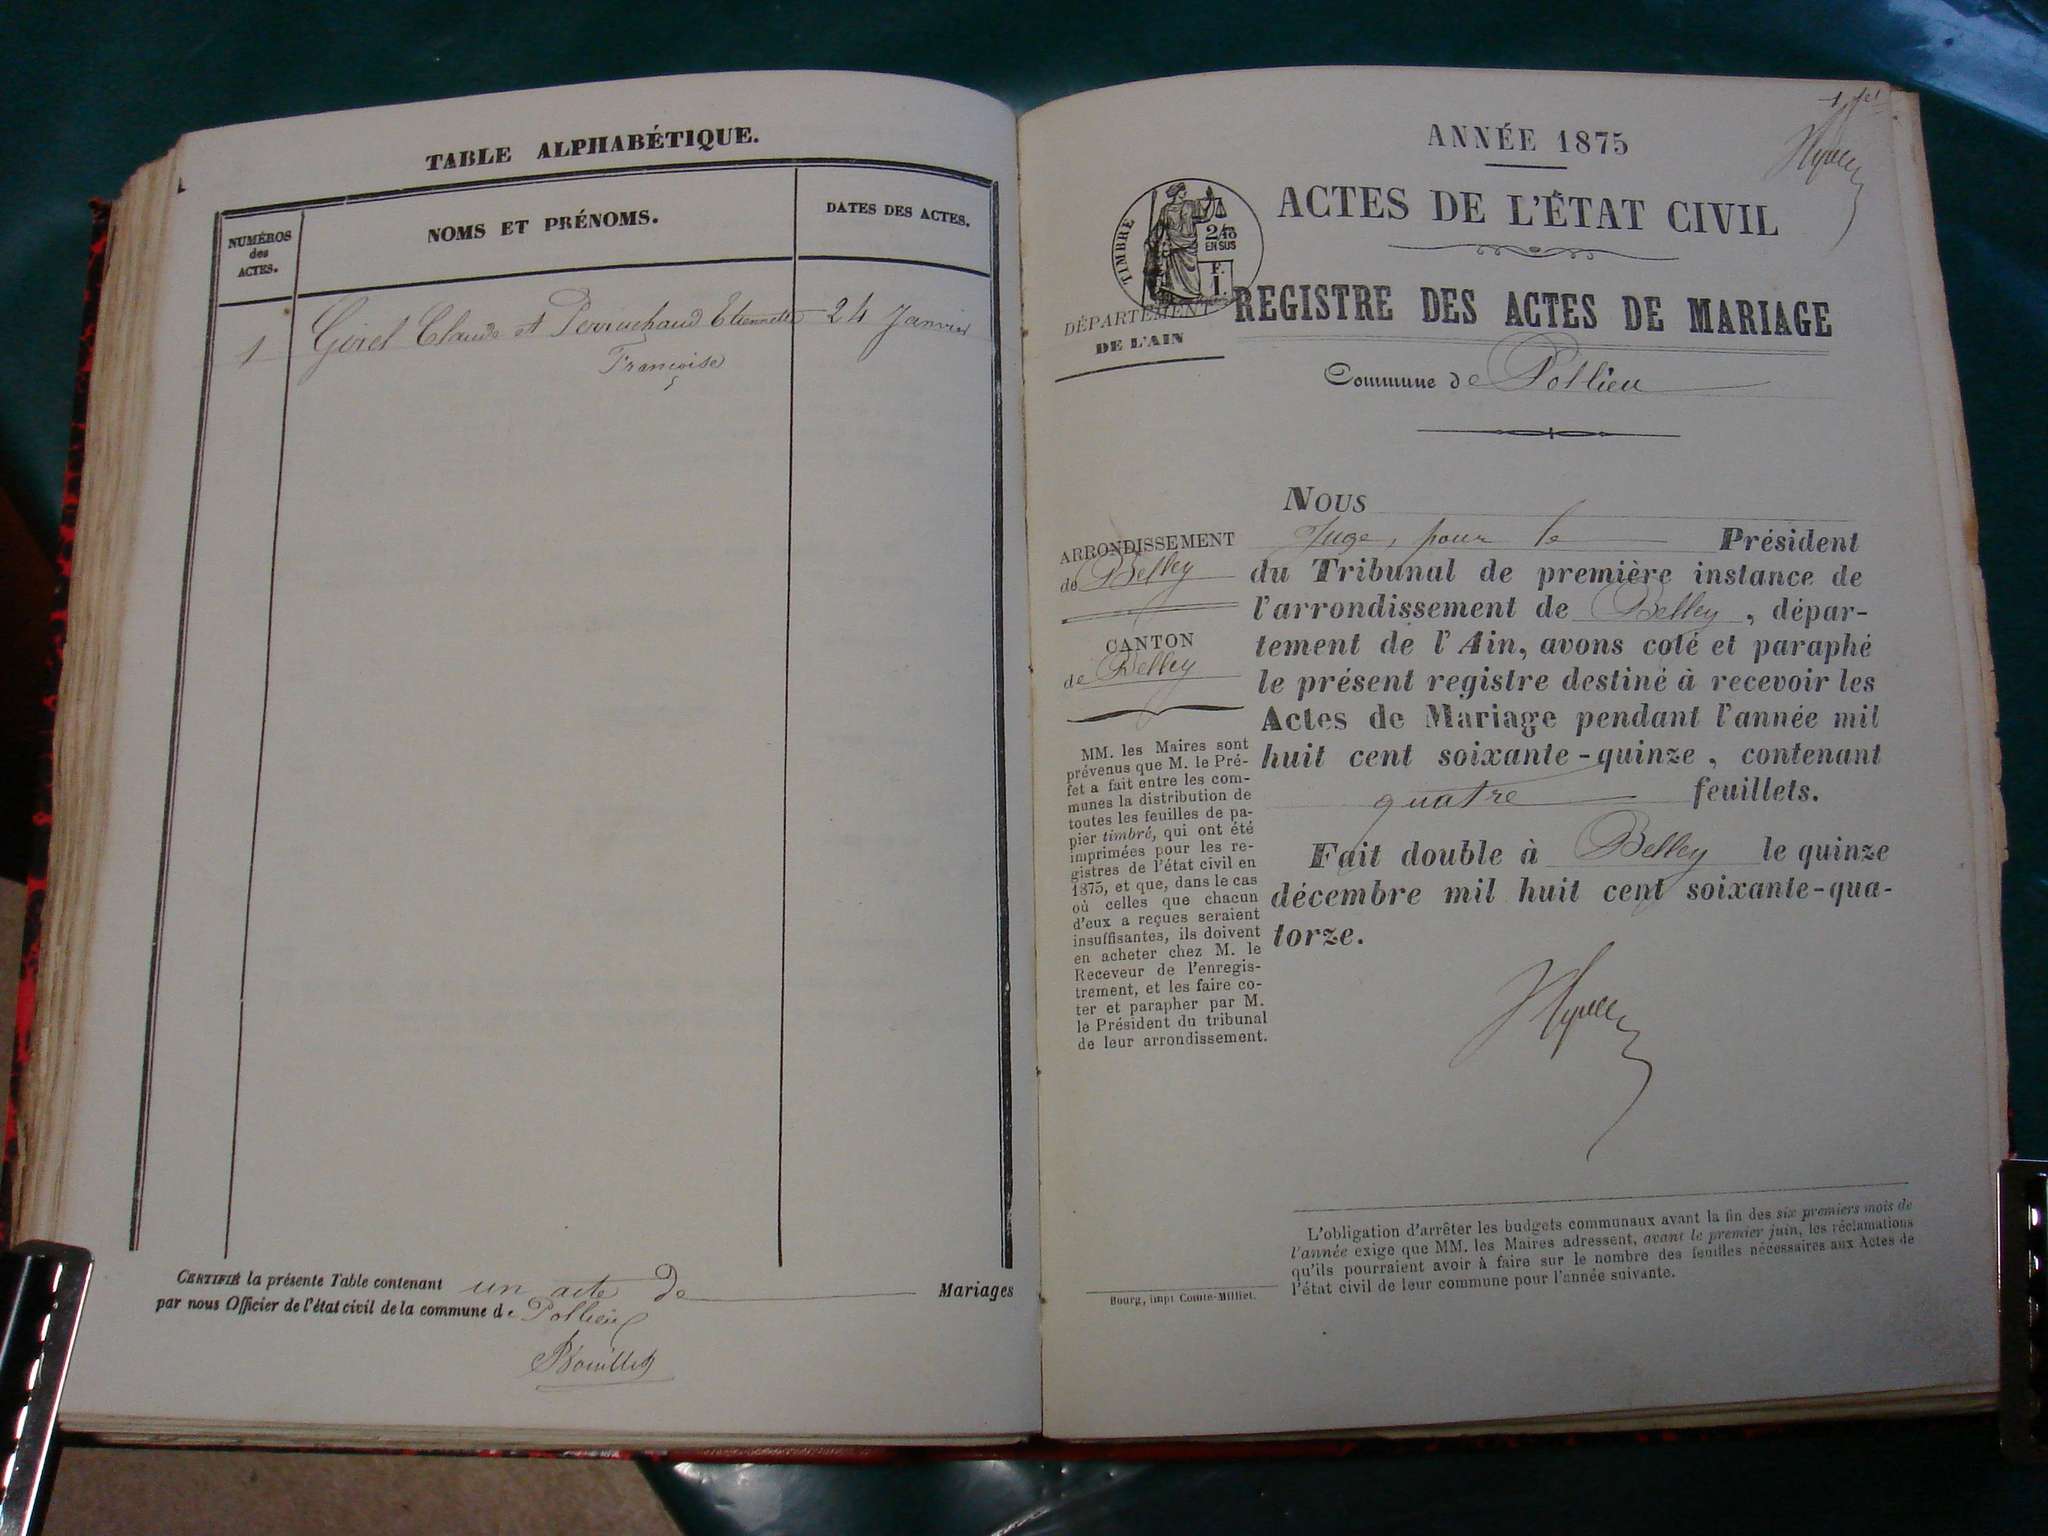 TABLE ALPHABÉTIQUE.
NUMÉROS
des
ACTES.
NOMS ET PRÉNOMS.
DATES DES ACTES.
1 Girel Claude et Perruchaud Etiennette 24 Janvier
Françoise
CERTIFIÉ la présente Table contenant un acte de Mariages
par nous Officier de l'état civil de la commune de Pollieu
1 fet
ANNÉE 1875
ACTES DE L'ÉTAT CIVIL
TIMBRE
2/10
EN SUS
F.
1.
REGISTRE DES ACTES DE MARIAGE
DÉPARTEMENT
DE L'AIN
Commune de Pollieu
ARRONDISSEMENT
de Belley
CANTON
de Belley
MM. les Maires sont
prévenus que M. le Pré-
fet a fait entre les com-
munes la distribution de
toutes les feuilles de pa-
pier timbré, qui ont été
imprimées pour les re-
gistres de l'état civil en
1875, et que, dans le cas
où celles que chacun
d'eux a reçues seraient
insuffisantes, ils doivent
en acheter chez M. le
Receveur de l'enregis-
trement, et les faire co-
ter et parapher par M.
le Président du tribunal
de leur arrondissement.
NOUS
Juge, pour le Président
du Tribunal de première instance de
l'arrondissement de Belley, dépar-
tement de l'Ain, avons coté et paraphé
le présent registre destiné à recevoir les
Actes de Mariage pendant l'année mil
huit cent soixante-quinze, contenant
quatre feuillets.
Fait double à Belley le quinze
décembre mil huit cent soixante-qua-
torze.
L'obligation d'arrêter les budgets communaux avant la fin des six premiers mois de
l'année exige que MM. les Maires adressent, avant le premier juin, les réclamations
qu'ils pourraient avoir à faire sur le nombre des feuilles nécessaires aux Actes de
l'état civil de leur commune pour l'année suivante.
Bourg, impt Comte-Milliet.